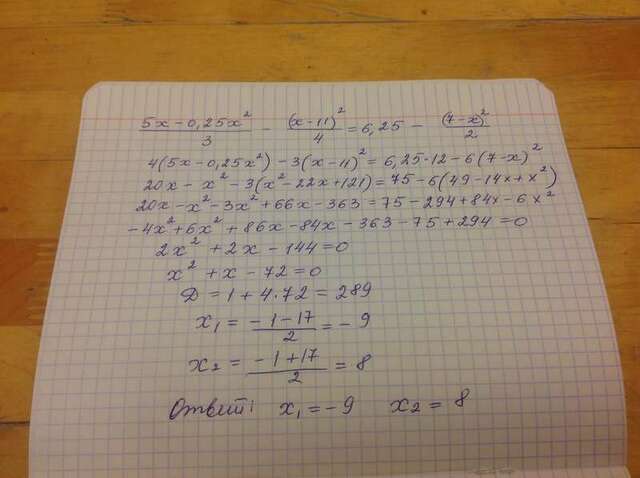 (5x-0,25x²)/3 - (x-11)²/4 = 6,25 - (7-x)²/2
4(5x-0,25x²)-3(x-11)²=6,25·12-6(7-x)²
20x-x²-3(x²-22x+121)=75-6(49-14x+x²)
20x-x²-3x²+66x-363=75-294+84x-6x²
-4x²+6x²+86x-84x-363-75+294=0
2x²+2x-144=0
x²+x-72=0
D=1+4·72=289
x₁=(-1-17)/2=-9
x₂=(-1+17)/2=8
Ответ: x₁=-9 x₂=8